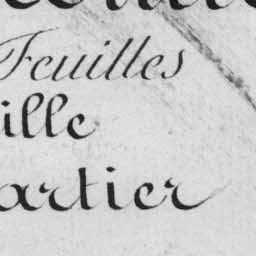 Feuilles
ille
artier